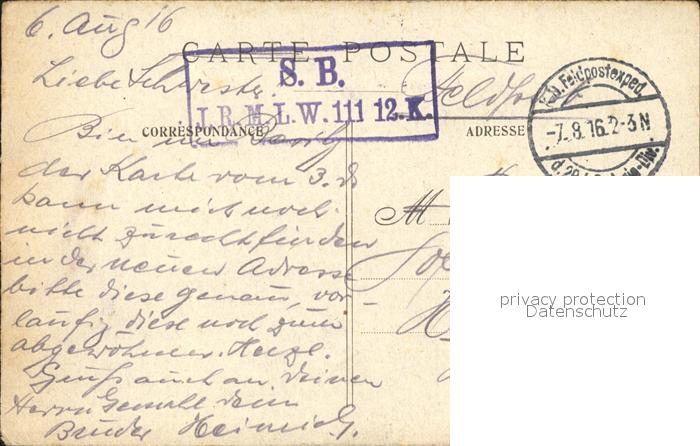 6. Aug 16
CARTE POSTALE
Liebe Schwester
Feldpost
S. B.
I. R. M. L. W. 111 12. K.
CORRESPONDANCE
ADRESSE
Feldpostexped.
-7.8.16.2-3N
Bin im
der Karte vom 3. ds
kann mich noch
nicht zurechtfinden
in der neuen Adresse
bitte diese genau, vor-
läufig diese noch zum
abgewöhnen. Herzl.
Gruß auch an deinen
Herrn Gemahl dein
Bruder Heinrich.
M
privacy protection
Datenschutz